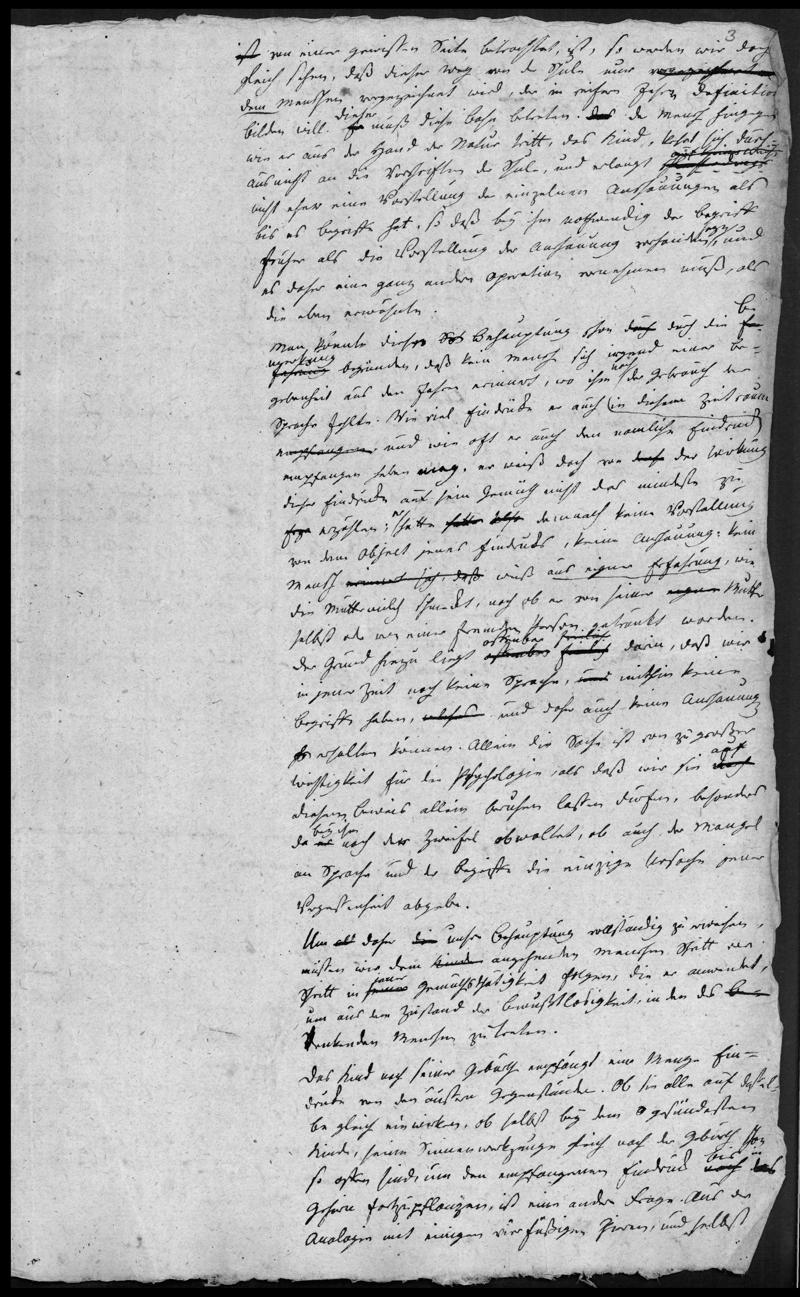 3
ist von einer gewissen Seite betrachtet, ist, so werden wir doch
gleich sehen, daß dieser Weg von der Schule nur vorgezeichnet
dem Menschen vorgezeichnet wird, der in reifen Jahren Definition
bilden will. Er dieser muß diese Bahn betreten. Das der Mensch hingegen
wie er aus der Hand der Natur tritt, das Kind, kehrt sich durch-
aus nicht an die Vorschriften der Schule, und erlangt
nicht eher eine Vorstellung der einzelnen Anschauungen als
bis es Begriffe hat, so daß bey ihm nothwendig der Begriff
früher als die Vorstellung der Anschauung vorhanden seyn, und
es daher eine ganz andere Operation vornehmen muß, als
die eben erwähnte.
Man könnte diese Behauptung schon durch die Be-
merkung begründen, daß kein Mensch sich irgend einer Be-
gebenheit aus den Jahren erinnert, wo ihm noch der Gebrauch der
Sprache fehlte. Wie viel Eindrücke er auch in diesem Zeitraum
empfangen, und wie oft er auch den nämlichen Eindruck
empfangen haben mag, er weiß doch von der Wirkung
dieser Eindrücke auf sein Gemüth nicht das mindeste zu
erzählen; er hatte demnach keine Vorstellung
von dem Objekt jenes Eindrucks, keine Anschauung. Kein
Mensch erinnert sich, daß weiß aus eigner Erfahrung, wie
die Muttermilch schmeckt, noch ob er von seiner eignen Mutter
selbst oder von einer fremden Person getränkt worden.
Der Grund hiezu liegt offenbar darin, daß wir
in jener Zeit noch keine Sprache, und mithin keine
Begriffe haben, welches und daher auch keine Anschauung
erhalten können. Allein die Sache ist von zu großer
Wichtigkeit für die Psychologie, als daß wir sie auf
diesem Beweis allein beruhen lassen dürfen, besonders
da bey ihm noch der Zweifel obwaltet, ob auch der Mangel
an Sprache und der Begriffe die einzige Ursache jener
Vergessenheit abgebe.
Um also daher die unsere Behauptung vollständig zu erweisen,
müssen wir dem Kinde angehenden Menschen Schritt vor
Schritt in jener Gemüthsthätigkeit folgen, die er anwendet,
um aus dem Zustand der Bewußtlosigkeit, in den des Be-
denkenden Menschen zu treten.
Das Kind nach seiner Geburth empfängt eine Menge Ein-
drücke von den äussern Gegenständen. Ob sie alle auf dassel-
be gleich einwirken, ob selbst bey dem gesündesten
Kinde, seine Sinnenwerkzeuge gleich nach der Geburth schon
so offen sind, um den empfangenen Eindruck bis in das
Gehirn fortzupflanzen, ist eine andere Frage. Aus der
Analogie mit einigen vierfüßigen Thieren, und selbst